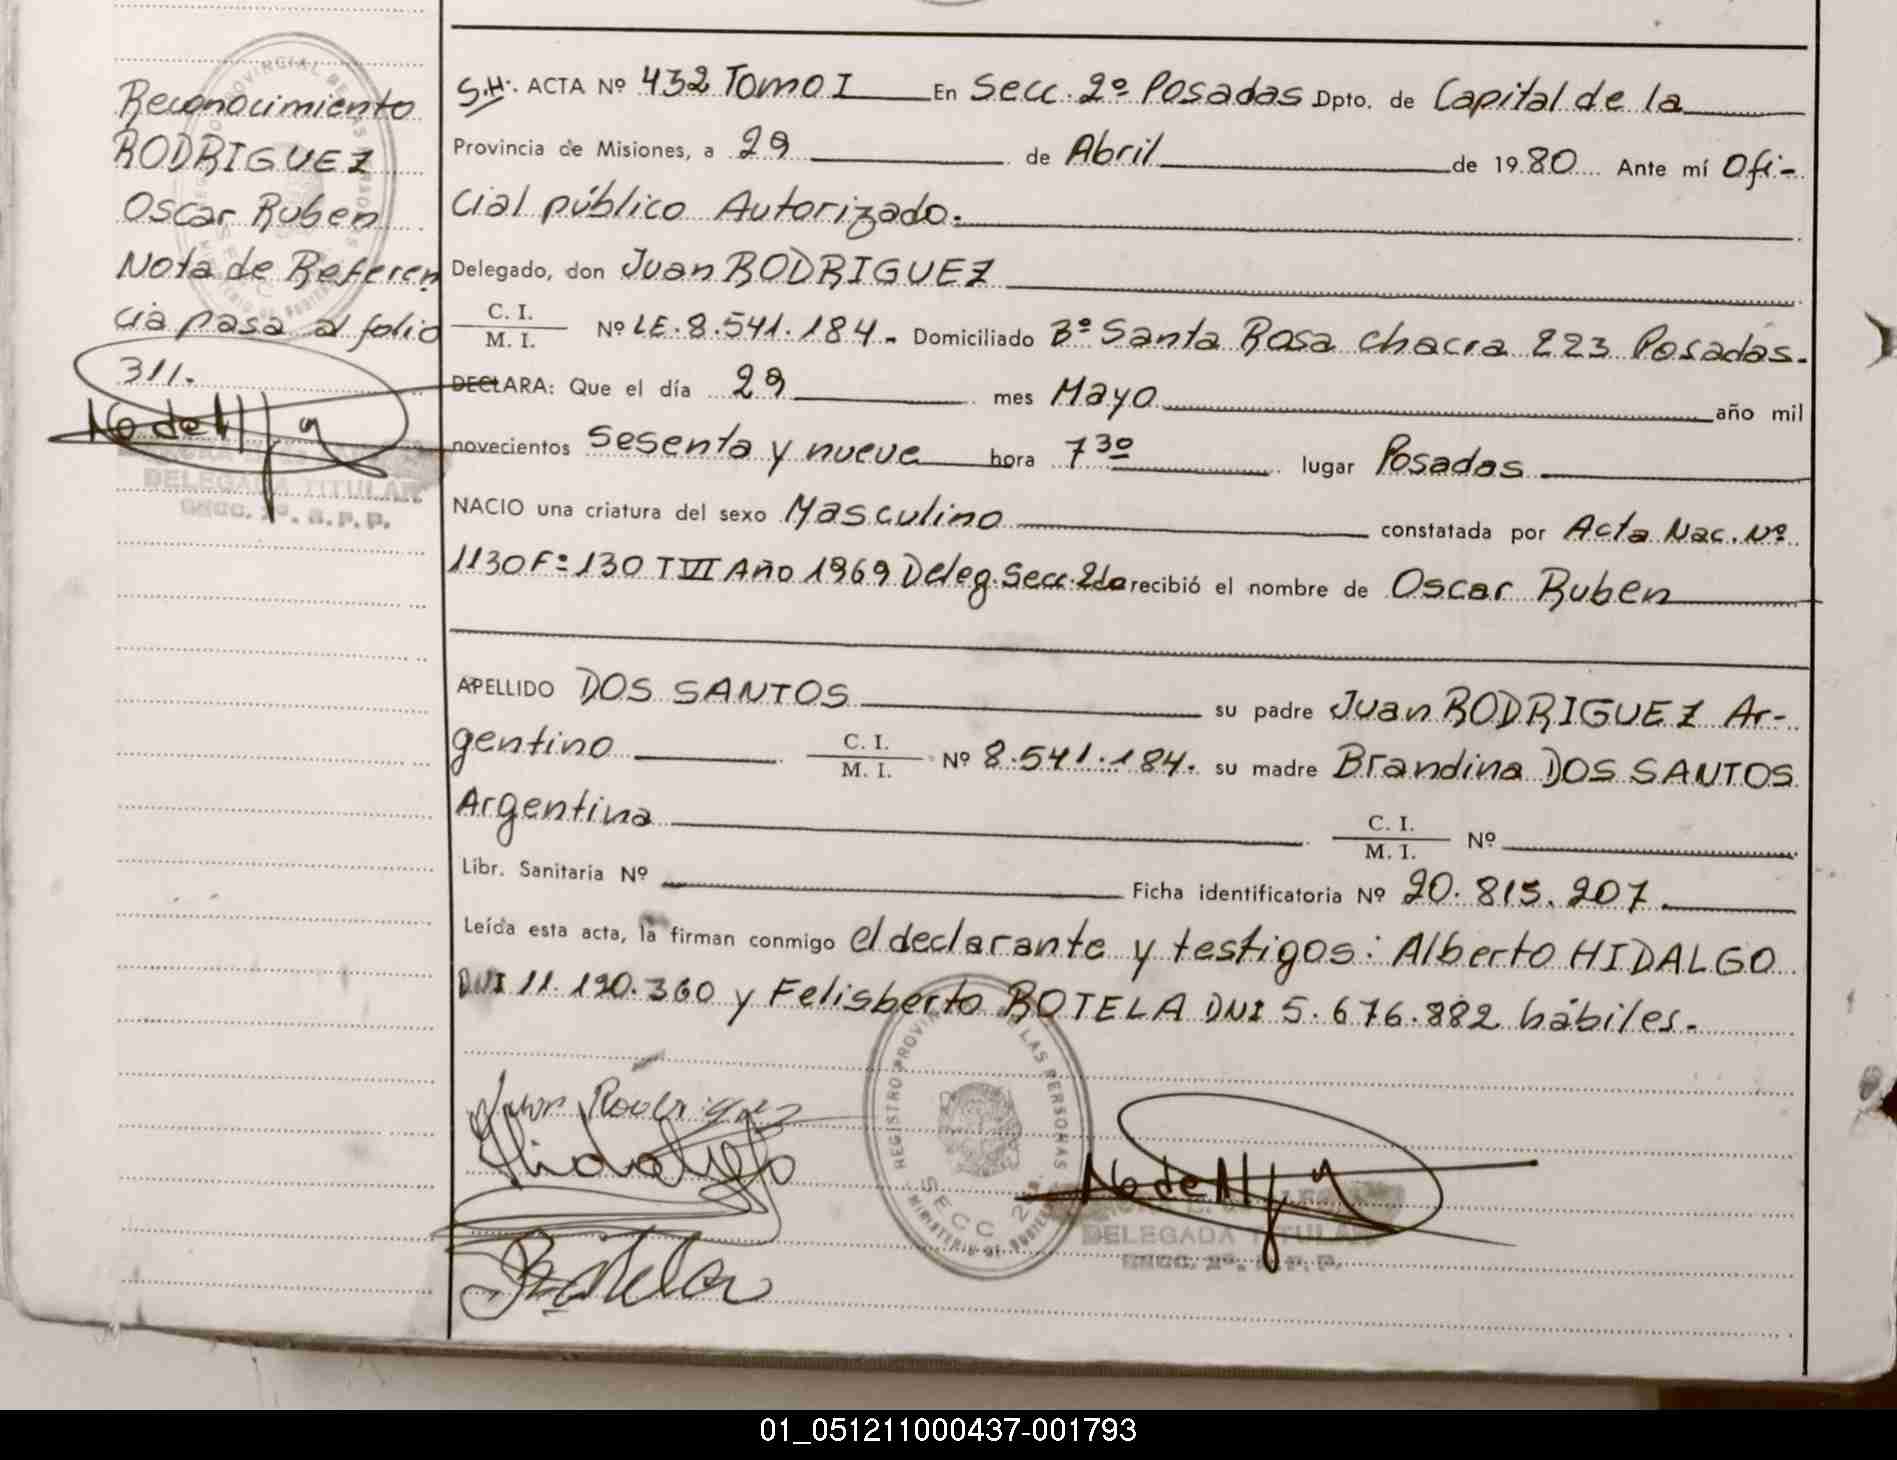 Reconocimiento
RODRIGUEZ
Oscar Ruben
Nota de Referen
cia pasa al folio
311.
DELEGADA TITULAR
SECC. 2ª. R.P.P.
S.H. ACTA Nº 432 Tomo I En Secc. 2º Posadas Dpto. de Capital de la
Provincia de Misiones, a 29 de Abril de 1980 Ante mí Ofi-
cial público Autorizado.
Delegado, don Juan RODRIGUEZ
C. I.
M. I. Nº LE. 8.541.184. Domiciliado Bº Santa Rosa chacra 223 Posadas.
DECLARA: Que el día 29 mes Mayo año mil
novecientos sesenta y nueve hora 7 30 lugar Posadas
NACIO una criatura del sexo Masculino constatada por Acta Nac. Nº
1130 Fº 130 T VII Año 1969 Deleg. Secc. 2da recibió el nombre de Oscar Ruben
APELLIDO DOS SANTOS su padre Juan RODRIGUEZ Ar-
gentino C. I. M. I. Nº 8.541.184. su madre Brandina DOS SANTOS
Argentina C. I. M. I. Nº
Libr. Sanitaria Nº Ficha identificatoria Nº 20.815.207
Leída esta acta, la firman conmigo el declarante y testigos: Alberto HIDALGO
DNI 11.190.360 y Felisberto BOTELA DNI 5.676.882 hábiles.
Juan Rodriguez
Hidalgo
REGISTRO PROVINCIAL DE LAS PERSONAS
SECC 2ª
MINISTERIO DE GOBIERNO
DELEGADA TITULAR
SECC. 2ª. R.P.P.
Botela
01_051211000437-001793